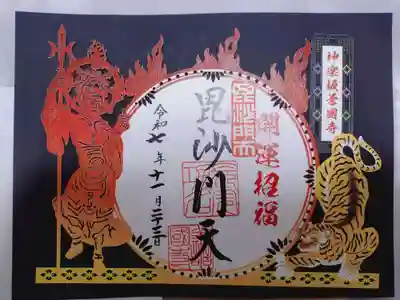 神楽坂善國寺
開運招福
毘沙門天
毘沙門天
令和七年十一月二十三日